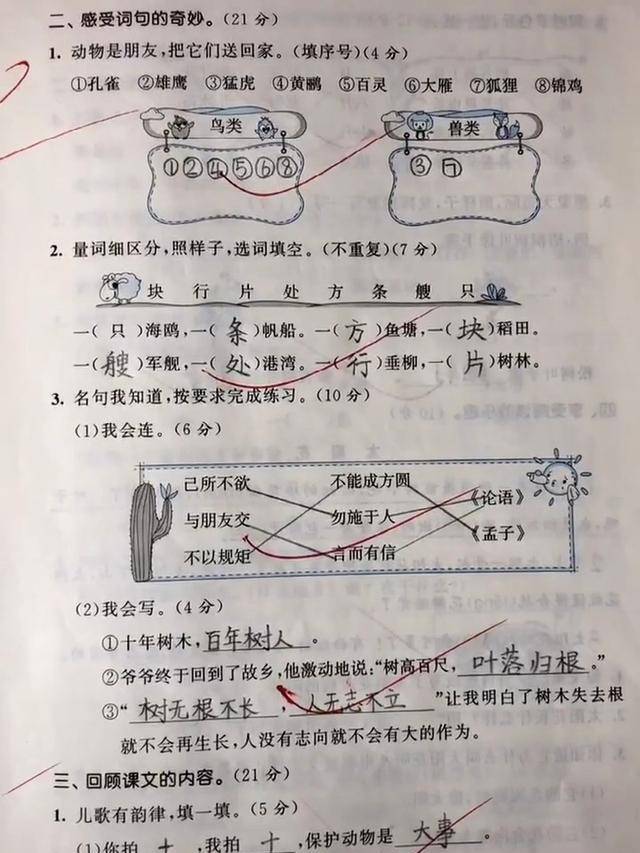 二、感受词句的奇妙。(21 分)
1. 动物是朋友,把它们送回家。(填序号)(4 分)
①孔雀 ②雄鹰 ③猛虎 ④黄鹂 ⑤百灵 ⑥大雁 ⑦狐狸 ⑧锦鸡
鸟类 兽类
①②④⑤⑥⑧ ③ ⑦
2. 量词细区分,照样子,选词填空。(不重复)(7 分)
块 行 片 处 方 条 艘 只
一( 只 )海鸥,一( 条 )帆船。一( 方 )鱼塘,一( 块 )稻田。
一( 艘 )军舰,一( 处 )港湾。一( 行 )垂柳,一( 片 )树林。
3. 名句我知道,按要求完成练习。(10 分)
(1)我会连。(6 分)
己所不欲 不能成方圆 《论语》
与朋友交 勿施于人 《孟子》
不以规矩 言而有信
(2)我会写。(4 分)
①十年树木,百年树人。
②爷爷终于回到了故乡,他激动地说:“树高百尺,叶落归根。”
③“树无根不长,人无志不立”让我明白了树木失去根
就不会再生长,人没有志向就不会有大的作为。
三、回顾课文的内容。(21 分)
1. 儿歌有韵律,填一填。(5 分)
(1)你拍 十,我拍 十,保护动物是 大事。